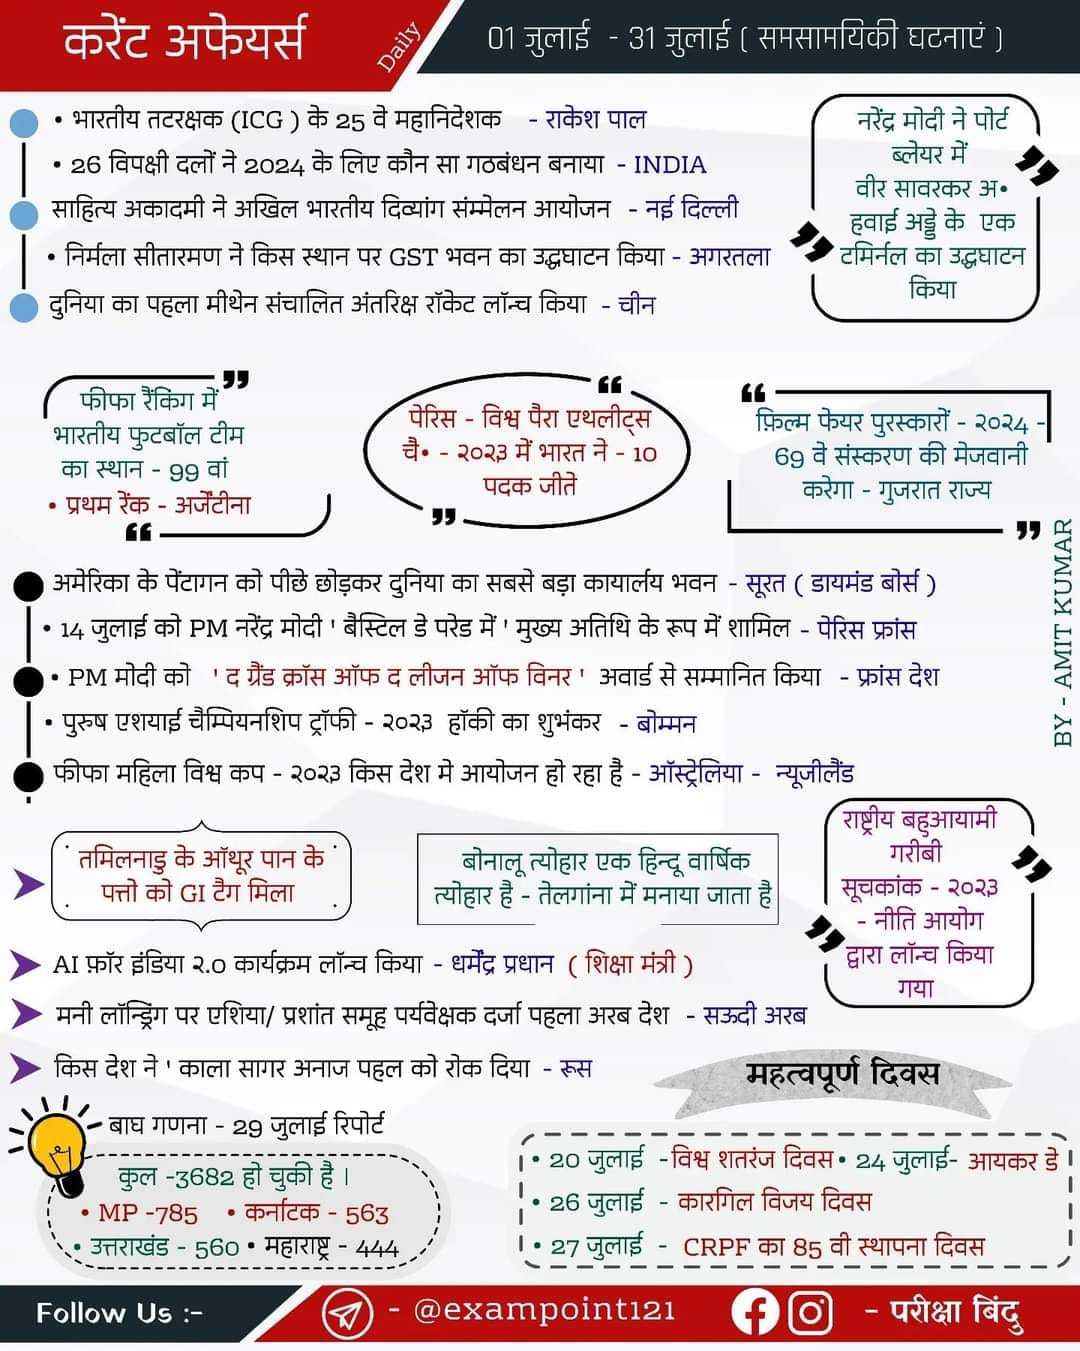 करेंट अफेयर्स
Daily
01 जुलाई - 31 जुलाई ( समसामयिकी घटनाएं )
• भारतीय तटरक्षक (ICG ) के 25 वे महानिदेशक - राकेश पाल
• 26 विपक्षी दलों ने 2024 के लिए कौन सा गठबंधन बनाया - INDIA
साहित्य अकादमी ने अखिल भारतीय दिव्यांग संम्मेलन आयोजन - नई दिल्ली
• निर्मला सीतारमण ने किस स्थान पर GST भवन का उद्धघाटन किया - अगरतला
दुनिया का पहला मीथेन संचालित अंतरिक्ष रॉकेट लॉन्च किया - चीन
नरेंद्र मोदी ने पोर्ट
ब्लेयर में
वीर सावरकर अ॰
हवाई अड्डे के एक
टमिर्नल का उद्धघाटन
किया
फीफा रैंकिंग में
भारतीय फुटबॉल टीम
का स्थान - 99 वां
• प्रथम रेंक - अर्जेंटीना
पेरिस - विश्व पैरा एथलीट्स
चै॰ - २०२३ में भारत ने - 10
पदक जीते
फ़िल्म फेयर पुरस्कारों - २०२४ -
69 वे संस्करण की मेजवानी
करेगा - गुजरात राज्य
अमेरिका के पेंटागन को पीछे छोड़कर दुनिया का सबसे बड़ा कायार्लय भवन - सूरत ( डायमंड बोर्स )
• 14 जुलाई को PM नरेंद्र मोदी ' बैस्टिल डे परेड में ' मुख्य अतिथि के रूप में शामिल - पेरिस फ्रांस
• PM मोदी को ' द ग्रैंड क्रॉस ऑफ द लीजन ऑफ विनर ' अवार्ड से सम्मानित किया - फ्रांस देश
• पुरुष एशयाई चैम्पियनशिप ट्रॉफी - २०२३ हॉकी का शुभंकर - बोम्मन
फीफा महिला विश्व कप - २०२३ किस देश मे आयोजन हो रहा है - ऑस्ट्रेलिया - न्यूजीलैंड
BY - AMIT KUMAR
तमिलनाडु के ऑथूर पान के
पत्तो को GI टैग मिला
बोनालू त्योहार एक हिन्दू वार्षिक
त्योहार है - तेलगांना में मनाया जाता है
राष्ट्रीय बहुआयामी
गरीबी
सूचकांक - २०२३
- नीति आयोग
द्वारा लॉन्च किया
गया
AI फ़ॉर इंडिया २.० कार्यक्रम लॉन्च किया - धर्मेंद्र प्रधान ( शिक्षा मंत्री )
मनी लॉन्ड्रिंग पर एशिया/ प्रशांत समूह पर्यवेक्षक दर्जा पहला अरब देश - सऊदी अरब
किस देश ने ' काला सागर अनाज पहल को रोक दिया - रूस
बाघ गणना - 29 जुलाई रिपोर्ट
कुल -3682 हो चुकी है ।
• MP -785 • कर्नाटक - 563
• उत्तराखंड - 560 • महाराष्ट्र - 444
महत्वपूर्ण दिवस
• 20 जुलाई -विश्व शतरंज दिवस • 24 जुलाई- आयकर डे
• 26 जुलाई - कारगिल विजय दिवस
• 27 जुलाई - CRPF का 85 वी स्थापना दिवस
Follow Us :-
- @exampoint121
- परीक्षा बिंदु